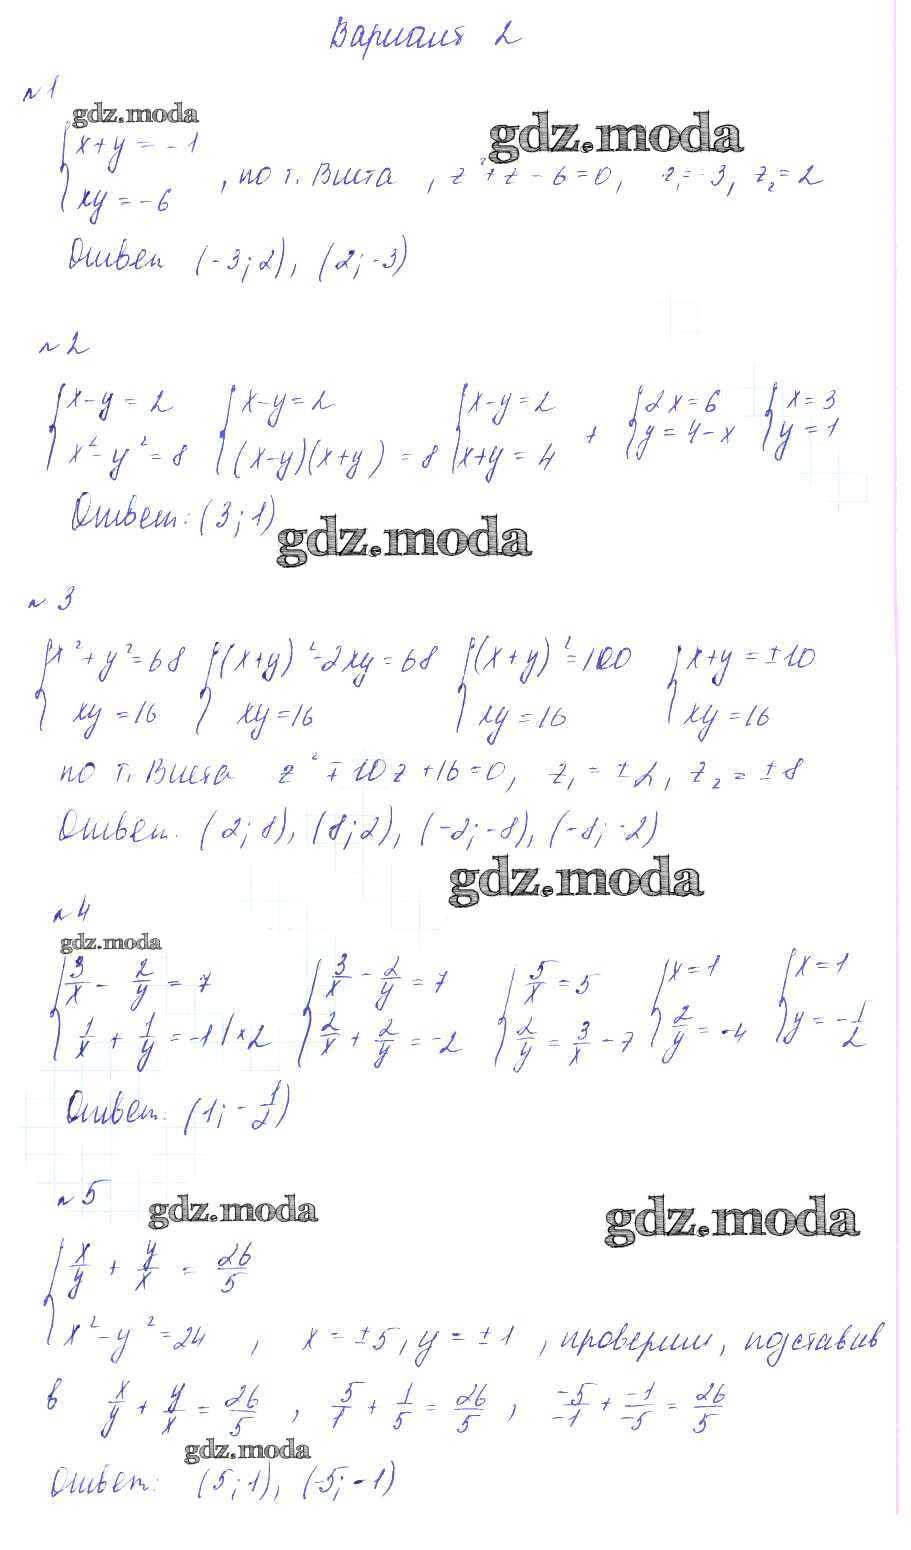 Вариант 2
№1
gdz.moda gdz.moda
{x+y = -1
{xy = -6 , по т. Виета , z² + z - 6 = 0, z₁ = -3, z₂ = 2
Ответ (-3; 2), (2; -3)
№2
{x-y = 2 {x-y = 2 {x-y = 2 + {2x = 6 {x = 3
{x²-y² = 8 {(x-y)(x+y) = 8 {x+y = 4 {y = 4-x {y = 1
Ответ: (3; 1)
gdz.moda
№3
{x²+y² = 68 {(x+y)²-2xy = 68 {(x+y)² = 100 {x+y = ±10
{xy = 16 {xy = 16 {xy = 16 {xy = 16
по т. Виета z² ∓ 10z + 16 = 0, z₁ = ±2, z₂ = ±8
Ответ. (2; 8), (8; 2), (-2; -8), (-8; -2)
gdz.moda
№4
gdz.moda
{3/x - 2/y = 7 {3/x - 2/y = 7 {5/x = 5 {x = 1 {x = 1
{1/x + 1/y = -1 |×2 {2/x + 2/y = -2 {2/y = 3/x - 7 {2/y = -4 {y = -1/2
Ответ. (1; -1/2)
№5
gdz.moda gdz.moda
{x/y + y/x = 26/5
{x²-y² = 24 , x = ±5, y = ±1 , проверим, подставив
в x/y + y/x = 26/5 , 5/1 + 1/5 = 26/5 , -5/-1 + -1/-5 = 26/5
gdz.moda
Ответ: (5; 1), (-5; -1)